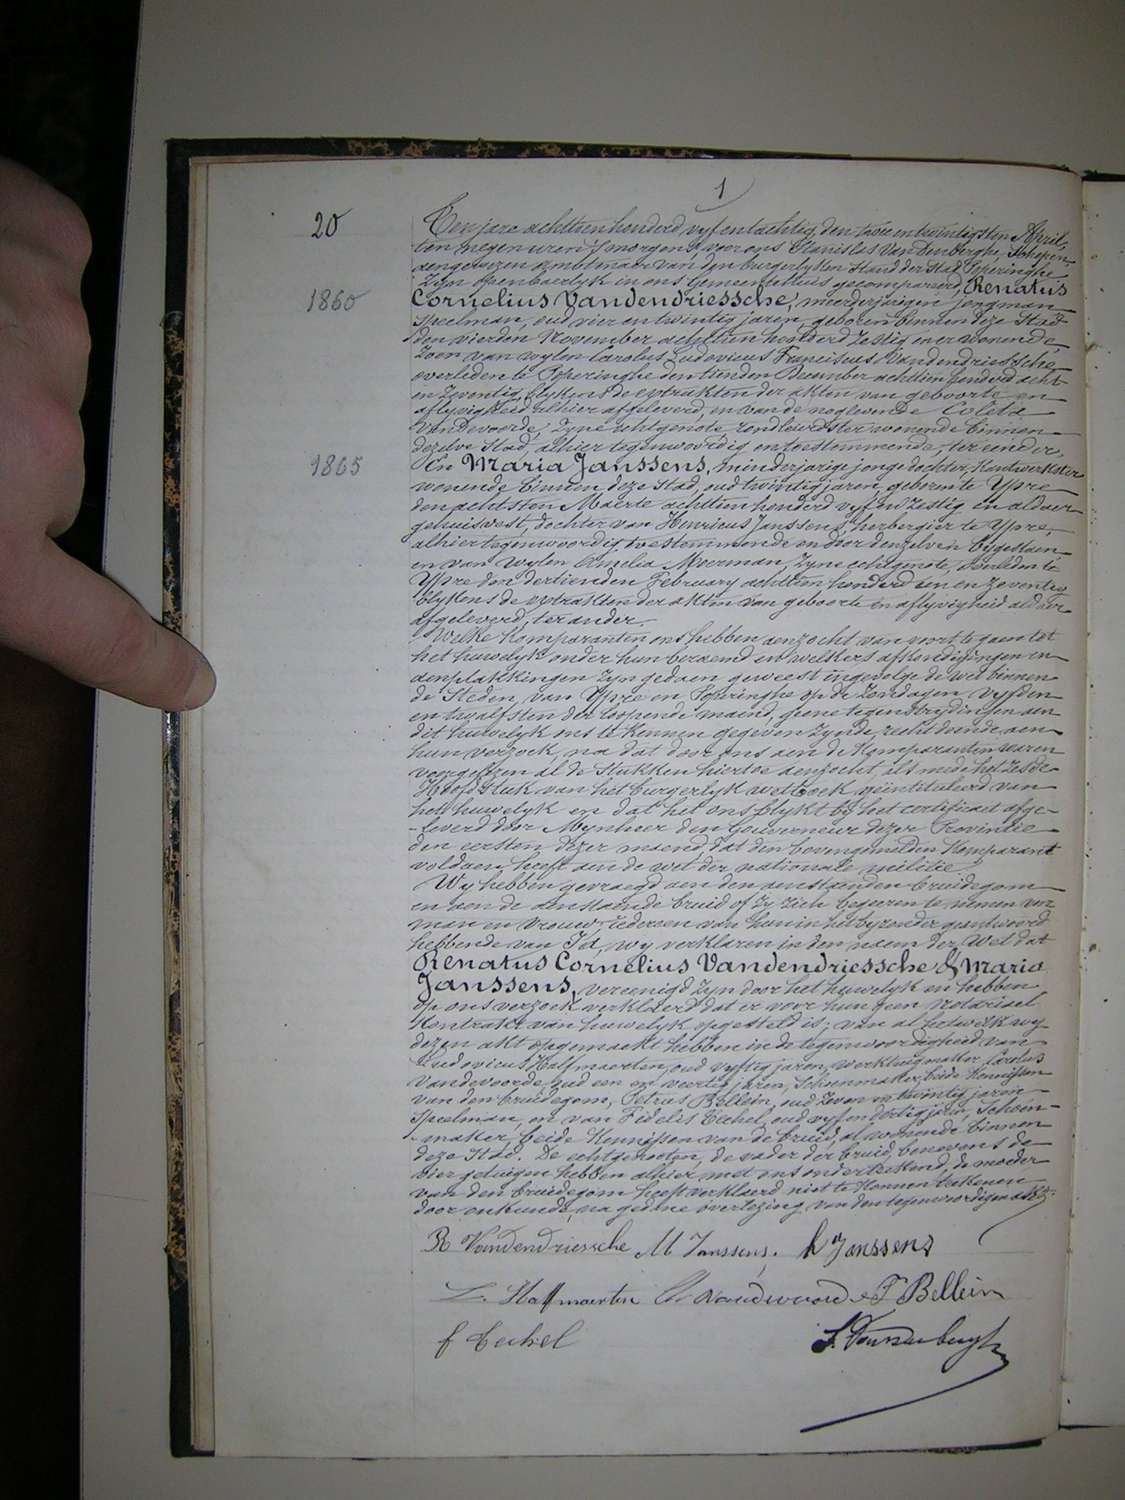 1
20
Ten jare achttien honderd vyf en tachtig, den twee en twintigsten April,
ten negen uren 's morgens, voor ons Stanislas Van den Berghe, Schepen
aengewezen ambtenaer van den burgerlyken Stand der Stad Poperinghe
Zyn openbaerlyk in ons Gemeentehuis gecompareerd, Renatus
1860
Cornelius Vandendriessche, meerderjarigen jongman
Speelman, oud vier en twintig jaren, geboren binnen deze Stad
den vierden November achttien honderd Zestig en er wonende,
Zoon van wylen Carolus Ludovicus Franciscus Vandendriessche
overleden te Poperinghe den tienden December achttien honderd acht
en Zeventig, blykens de extrakten der akten van geboorte en
aflyvigheid alhier afgeleverd, en van de noglevende Coleta
Vandevoorde, Zyne echtgenote, wonende binnen
dezelve Stad, alhier tegenwoordig en toestemmende, ter eender
1865
En Maria Janssens, minderjarige jonge dochter, Kantwerkster
wonende binnen deze Stad, oud twintig jaren, geboren te Ypre
den achtsten Maerte achttien honderd vyf en Zestig en aldaer
gehuisvest, dochter van Henricus Janssens, herbergier te Ypre,
alhier tegenwoordig, toestemmende en door denzelven bygestaen
en van wylen Amelia Moerman, Zyne echtgenote, overleden te
Ypre den dertienden February achttien honderd een en Zeventig
blykens de extrakten der akten van geboorte en aflyvigheid aldaer
afgeleverd, ter ander.
Welke Komparanten ons hebben aenzocht van voort te gaen tot
het huwelyk onder hun beraemd en welkers afkondigingen en
aenplakkingen Zyn gedaen geweest ingevolge de wet binnen
de Steden van Ypre en Poperinghe op de Zondagen vyfden
en twaalfsten der loopende maend, geene tegenstrydingen aen
dit huwelyk ons te kennen gegeven Zynde, rechtdoende aen
hun verzoek, na dat door ons aen de Komparanten waren
voorgelezen al de Stukken hiertoe aenzocht, als mede het Zesde
Hoofdstuk van het burgerlyk wetboek geintituleerd van
het huwelyk en dat het ons blykt by het certificaet afge-
-leverd door Mynheer den Gouverneur dezer Provintie
den eersten dezer maend dat den bovengemelden Komparant
voldaen heeft aen de wet der nationale militie
Wy hebben gevraegd aen den aenstaenden bruidegom
en aen de aenstaende bruid of Zy Zich begeeren te nemen voor
man en vrouw, Iedereen van hun in het byzonder geantwoord
hebbende van Ja, wy verklaren in den naem der Wet dat
Renatus Cornelius Vandendriessche & Maria
Janssens, vereenigd Zyn door het huwelyk en hebben
op ons verzoek verklaerd dat er voor hun geen notarieel
Kontrakt van huwelyk opgesteld is; van al hetwelk wy
dezen akt opgemaekt hebben in de tegenwoordigheid van
Ludovicus Halfmaerten, oud vyftig jaren, werktuigmaker, Carolus
Vandevoorde, oud een en veertig jaren, Schoenmaker, beide Kennissen
van den bruidegom, Petrus Bellein, oud Zeven en twintig jaren
Speelman, en van Fidelis Eeckel, oud vyf en dertig jaren, Schoen-
-maker, beide Kennissen van de bruid, al wonende binnen
deze Stad. De echtgenooten, de vader der bruid, benevens de
vier getuigen hebben alhier met ons onderteekend, de moeder
van den bruidegom heeft verklaerd niet te Konnen teekenen
door onkunde, na gedane overlezing van den tegenwoordigen akt.
R Vandendriessche M Janssens. h Janssens
L. Halfmaerten Ch Vandevoorde P Bellein
f Eeckel S. Vandenberghe